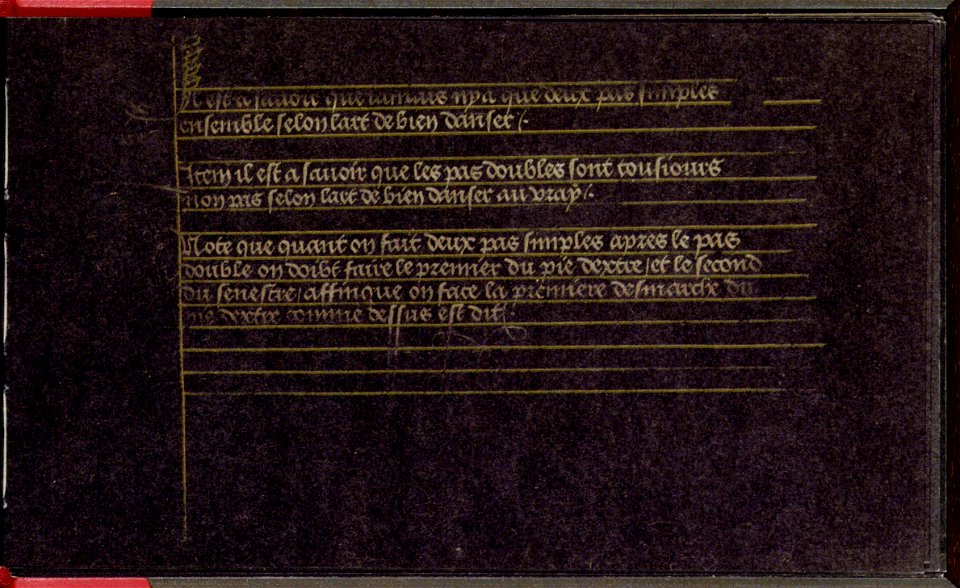 Il est a sauoir que iamais nya que deux pas simples
ensemble selon lart de bien danser /.
Item il est a sauoir que les pas doubles sont tousiours
non pas selon lart de bien danser au vray /.
Note que quant on fait deux pas simples apres le pas
double on doibt faire le premier du pie dextre / et le second
du senestre / affinque on face la premiere desmarche du
pie dextre comme dessus est dit /.